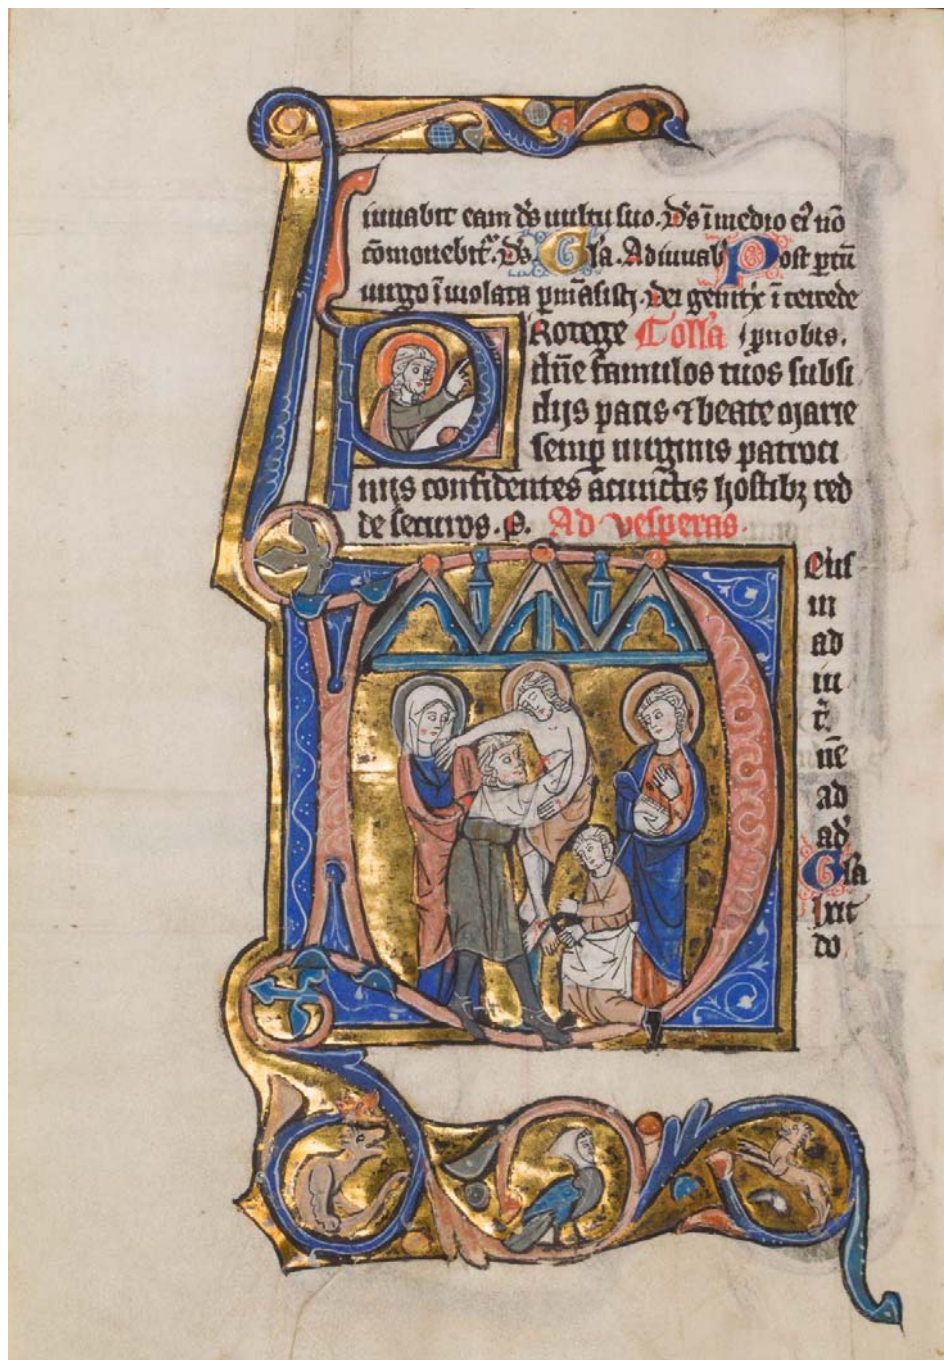 iuuabit eam ds uultu suo. Ds ī medio eꝰ nō
cōmouebit᷑. Ds. Gla. Adiuuab Post ptū
uirgo īuiolata pmāsisti. Dei genitx ī tercede
Rotege Coll'a p nobis.
dn̄e famulos tuos subsi
dijs pacis ⁊ beate marie
semp̱ uirginis patroci
niis confidentes a cunctis hostibꝫ red
de securos. p. Ad vesperas.
Eus
in
ad
iu
t̄.
n̄e
ad
ad'
Gla
ixit
do